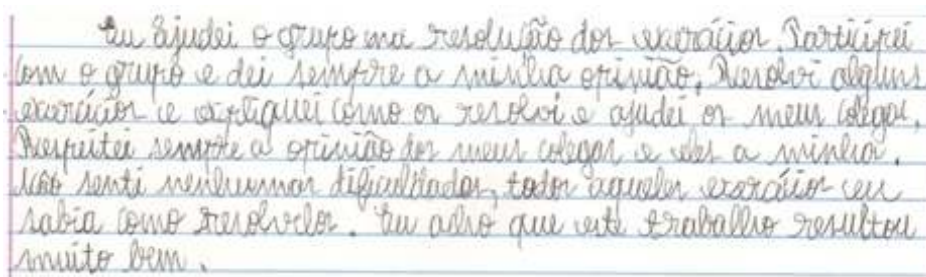 Eu ajudei o grupo na resolução dos exercícios. Participei
com o grupo e dei sempre a minha opinião. Resolvi alguns
exercícios e expliquei como os resolvi e ajudei os meus colegas.
Respeitei sempre a opinião dos meus colegas e eles a minha.
Não senti nenhumas dificuldades, todos aqueles exercícios eu
sabia como resolvelos. Eu acho que este trabalho resultou
muito bem.